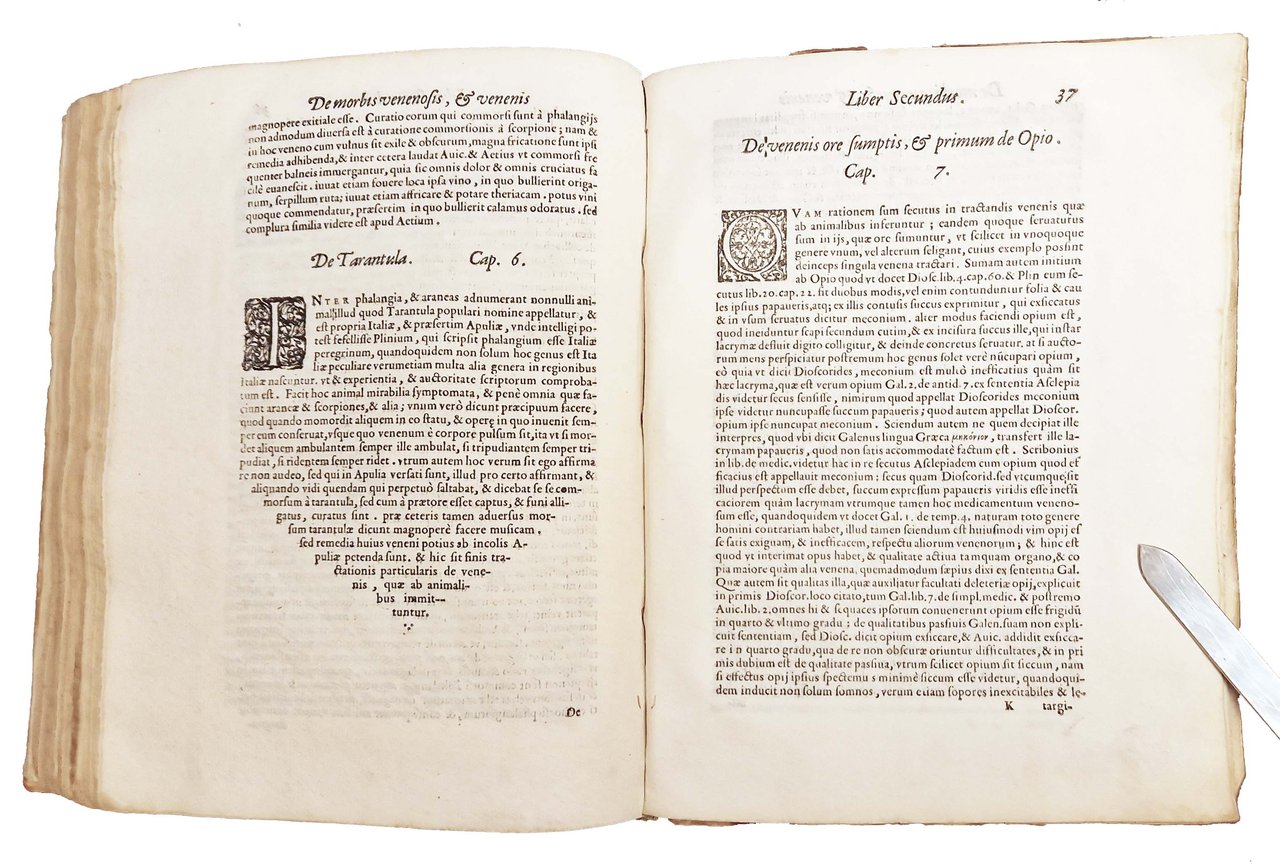 De morbis venenosis, & venenis
magnopere exitiale esse. Curatio eorum qui commorsi sunt à phalangijs
non admodum diversa est à curatione commorsionis à scorpione; nam &
in hoc veneno cum vulnus sit exile & obscurum, magna fricatione sunt ipsi
remedia adhibenda, & inter cetera laudat Auic. & Aetius vt commorsi fre
quenter balneis immergantur, quia sic omnis dolor & omnis cruciatus fa
cilè euanescit. iuuat etiam fouere loca ipsa vino, in quo bullierint origa-
num, serpillum ruta; iuuat etiam affricare & potare theriacam. potus vini
quoque commendatur, præsertim in quo bullierit calamus odoratus. sed
complura similia videre est apud Aetium.
De Tarantula. Cap. 6.
INTER phalangia, & araneas adnumerant nonnulli ani-
mal illud quod Tarantula populari nomine appellatur, &
est propria Italiæ, & præsertim Apuliæ, vnde intelligi po-
test fefellisse Plinium, qui scripsit phalangium esse Italiæ
peregrinum, quandoquidem non solum hoc genus est Ita
liæ peculiare verumetiam multa alia genera in regionibus
Italiæ nascuntur. vt & experientia, & auctoritate scriptorum comproba-
tum est. Facit hoc animal mirabilia symptomata, & penè omnia quæ fa-
ciunt araneæ & scorpiones, & alia; vnum verò dicunt præcipuum facere,
quod quando momordit aliquem in eo statu, & opere in quo inuenit sem-
per eum conseruat, vsque quo venenum è corpore pulsum sit, ita vt si mor-
det aliquem ambulantem semper ille ambulat, si tripudiantem semper tri-
pudiat, si ridentem semper ridet. vtrum autem hoc verum sit ego affirma
re non audeo, sed qui in Apulia versati sunt, illud pro certo affirmant, &
aliquando vidi quendam qui perpetuò saltabat, & dicebat se se com-
morsum à tarantula, sed cum à prætore esset captus, & funi alli-
gatus, curatus sint. præ ceteris tamen aduersus mor-
sum tarantulæ dicunt magnoperè facere musicam.
sed remedia huius veneni potius ab incolis A-
puliæ petenda sunt. & hic sit finis tra-
ctationis particularis de vene-
nis, quæ ab animali-
bus immit--
tuntur.
De
Liber Secundus. 37
De venenis ore sumptis, & primum de Opio.
Cap. 7.
QVAM rationem sum secutus in tractandis venenis quæ
ab animalibus inferuntur; eandem quoque seruaturus
sum in ijs, quæ ore sumuntur, vt scilicet in vnoquoque
genere vnum, vel alterum seligant, cuius exemplo possint
deinceps singula venena tractari. Sumam autem initium
ab Opio quod vt docet Diosc. lib. 4. cap. 60. & Plin eum se-
cutus lib. 20. cap. 22. fit duobus modis, vel enim contunduntur folia & cau
les ipsius papaueris, atq; ex illis contusis succus exprimitur, qui exsiccatus
& in vsum seruatus dicitur meconium. alter modus faciendi opium est,
quod inciduntur scapi secundum cutim, & ex incisura succus ille, qui instar
lacrymæ defluit digito colligitur, & deinde concretus seruatur. at si aucto-
rum mens perspiciatur postremum hoc genus solet verè nūcupari opium,
eò quia vt dicit Dioscorides, meconium est multò inefficatius quàm sit
hæc lacryma, quæ est verum opium Gal. 2. de antid. 7. ex sententia Asclepia
dis videtur secus sensisse, nimirum quod appellat Dioscorides meconium
ipse videtur nuncupasse succum papaueris; quod autem appellat Dioscor.
opium ipse nuncupat meconium. Sciendum autem ne quem decipiat ille
interpres, quod vbi dicit Galenus lingua Græca μηκόνιον, transfert ille la-
crymam papaueris, quod non satis accommodatè factum est. Scribonius
in lib. de medic. videtur hac in re secutus Asclepiadem cum opium quod ef
ficacius est appellauit meconium; secus quam Dioscorid. sed vtcumque sit
illud perspectum esse debet, succum expressum papaueris viridis esse ineffi
caciorem quàm lacrymam vtrumque tamen hoc medicamentum veneno-
sum esse, quandoquidem vt docet Gal. 1. de temp. 4. naturam toto genere
homini contrariam habet, illud tamen sciendum est huiusmodi vim opij es
se satis exiguam, & inefficacem, respectu aliorum venenorum; & hinc est
quod vt interimat opus habet, & qualitate actiua tamquam organo, & co
pia maiore quàm alia venena, quemadmodum sæpius dixi ex sententia Gal.
Quæ autem sit qualitas illa, quæ auxiliatur facultati deleteriæ opij, explicuit
in primis Dioscor. loco citato, tum Gal. lib. 7. de simpl. medic. & postremo
Auic. lib. 2. omnes hi & sequaces ipsorum conuenerunt opium esse frigidū
in quarto & vltimo gradu; de qualitatibus passiuis Galen. suam non expli-
cuit sententiam, sed Diosc. dicit opium exsiccare, & Auic. addidit exsicca-
re in quarto gradu, qua de re non obscuræ oriuntur difficultates, & in pri
mis dubium est de qualitate passiua, vtrum scilicet opium sit siccum, nam
si effectus opij ipsius spectemus minimè siccum esse videtur, quandoqui-
dem inducit non solum somnos, verum etiam sopores inexcitabiles & le-
K targi-